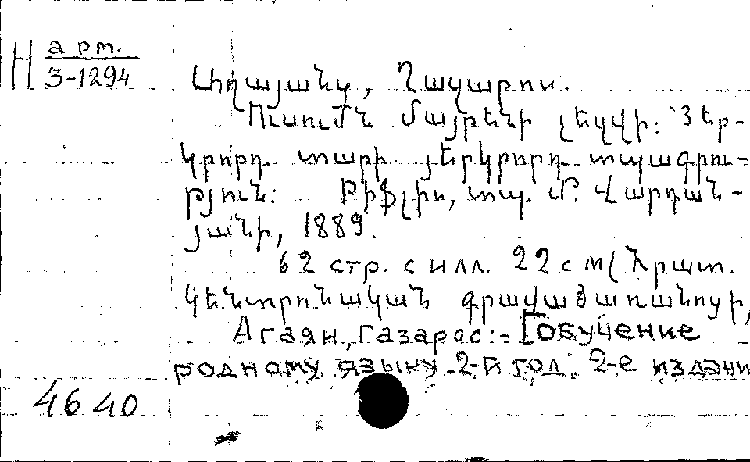 Н арт.
3-1294
Աղայանց, Ղազարոս.
Ուսումն մայրենի լեզվի: Յեր-
կրորդ տարի յերկրորդ տպագրու-
թյուն: Թիֆլիս, տպ. Մ. Վարդան-
յանի, 1889.
62 стр. с илл. 22 см (Հրատ.
Կենտրոնական գրավաճառանոցի,
Агаян, Газарос:- [обучение
родному языку. 2-й год. 2-е издани
4640